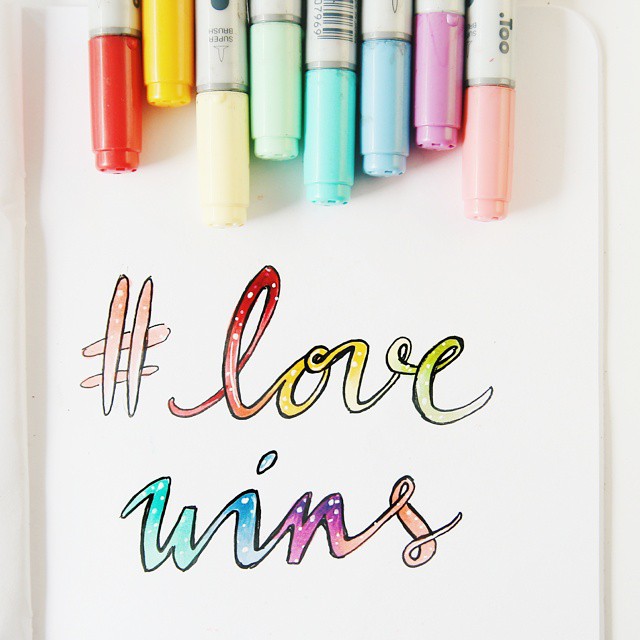 SUPER
BRUSH
07969
.Too
#love
wins